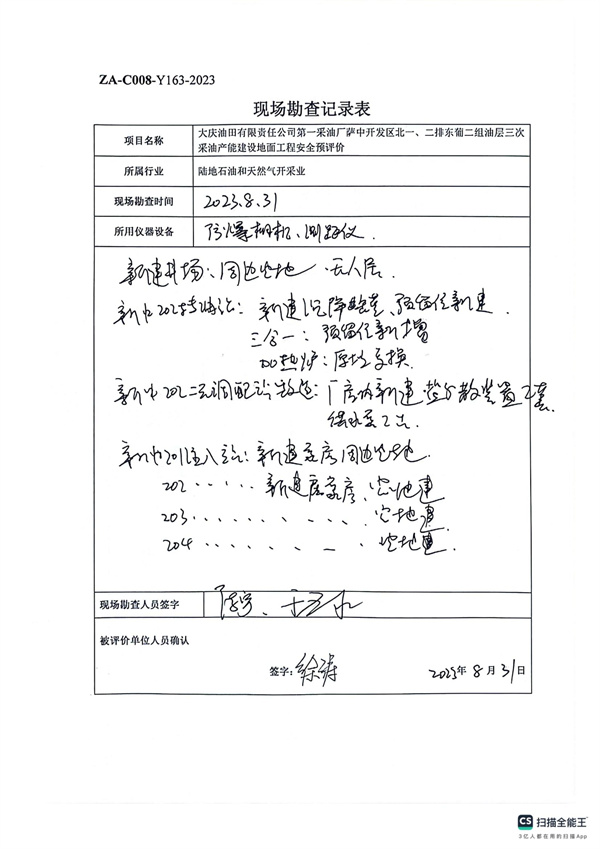 ZA-C008-Y163-2023
现场勘查记录表
项目名称
大庆油田有限责任公司第一采油厂萨中开发区北一、二排东葡二组油层三次
采油产能建设地面工程安全预评价
所属行业
陆地石油和天然气开采业
现场勘查时间
2023.8.31
所用仪器设备
防爆相机、测距仪.
新建井场:周边空地 无人居.
新中202转油站:新建沉降 预留位新建.
三合一:预留位新增
加热炉:原址 换.
新中202 调配 :厂房内新建 分散装置2套
新中201注入站:新建泵房周边空地.
202 ····· 新建 泵房、空地建
203 ········· 空地建.
204 ······ 空地建.
现场勘查人员签字
被评价单位人员确认
签字:徐涛
2023年8月31日
CS 扫描全能王
3亿人都在用的扫描App